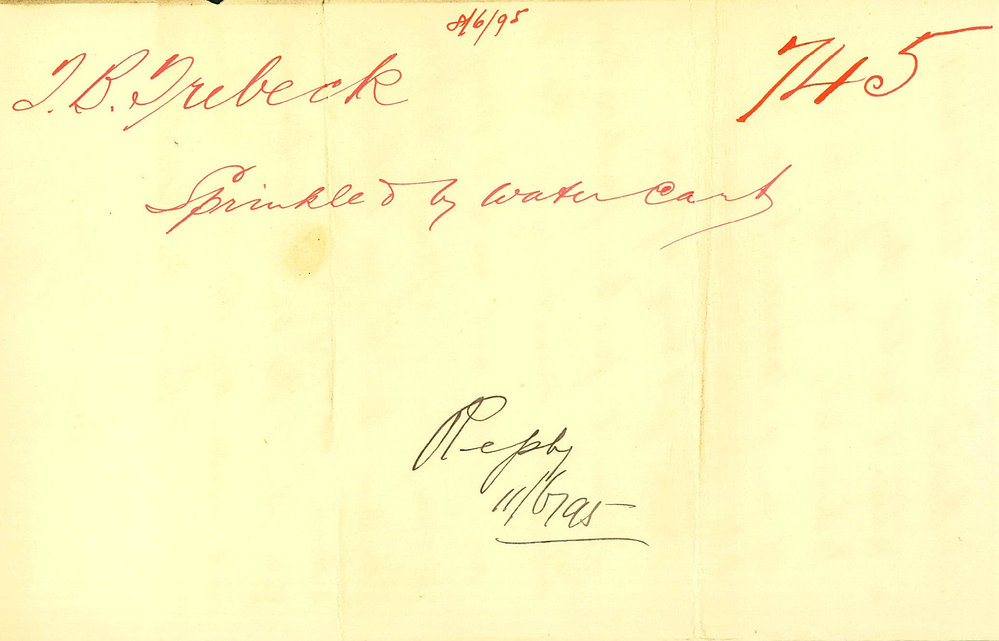 8/6/95
T. B. Trebeck 745
Sprinkled by water cart
Reply
11/6/95